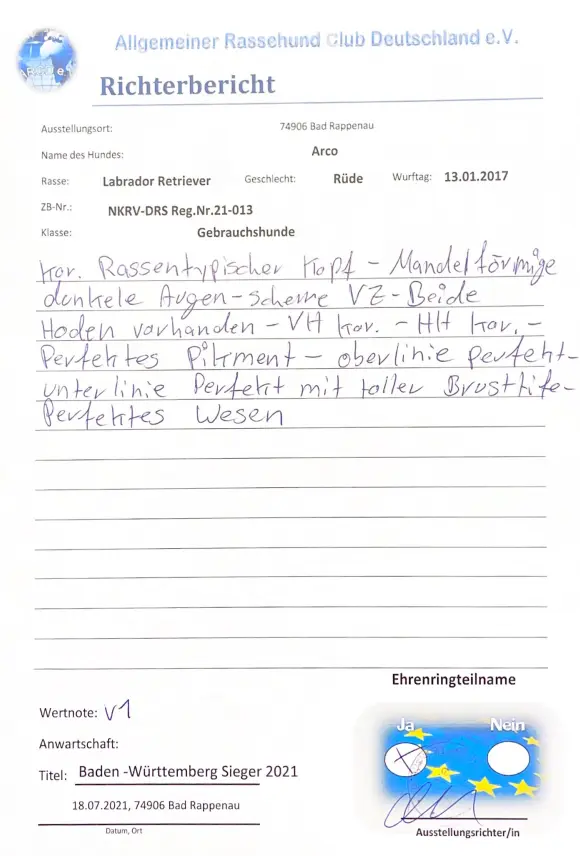 Allgemeiner Rassehund Club Deutschland e.V.
Richterbericht
Ausstellungsort: 74906 Bad Rappenau
Name des Hundes: Arco
Rasse: Labrador Retriever Geschlecht: Rüde Wurftag: 13.01.2017
ZB-Nr.: NKRV-DRS Reg.Nr.21-013
Klasse: Gebrauchshunde
kor. Rassentypischer Kopf - Mandelförmige
dunkele Augen - scherre VZ - Beide
Hoden vorhanden - VH kor. - HH kor. -
Perfektes Pikment - oberlinie perfekt -
unterlinie Perfekt mit toller Brusttife -
Perfektes Wesen
Ehrenringteilname
Wertnote: V1
Ja Nein
Anwartschaft:
Titel: Baden -Württemberg Sieger 2021
18.07.2021, 74906 Bad Rappenau
Datum, Ort
Ausstellungsrichter/in